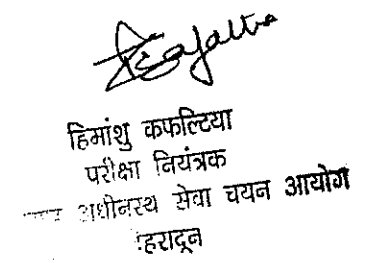 हिमांशु कफल्टिया
परीक्षा नियंत्रक
अधीनस्थ सेवा चयन आयोग
हरादून